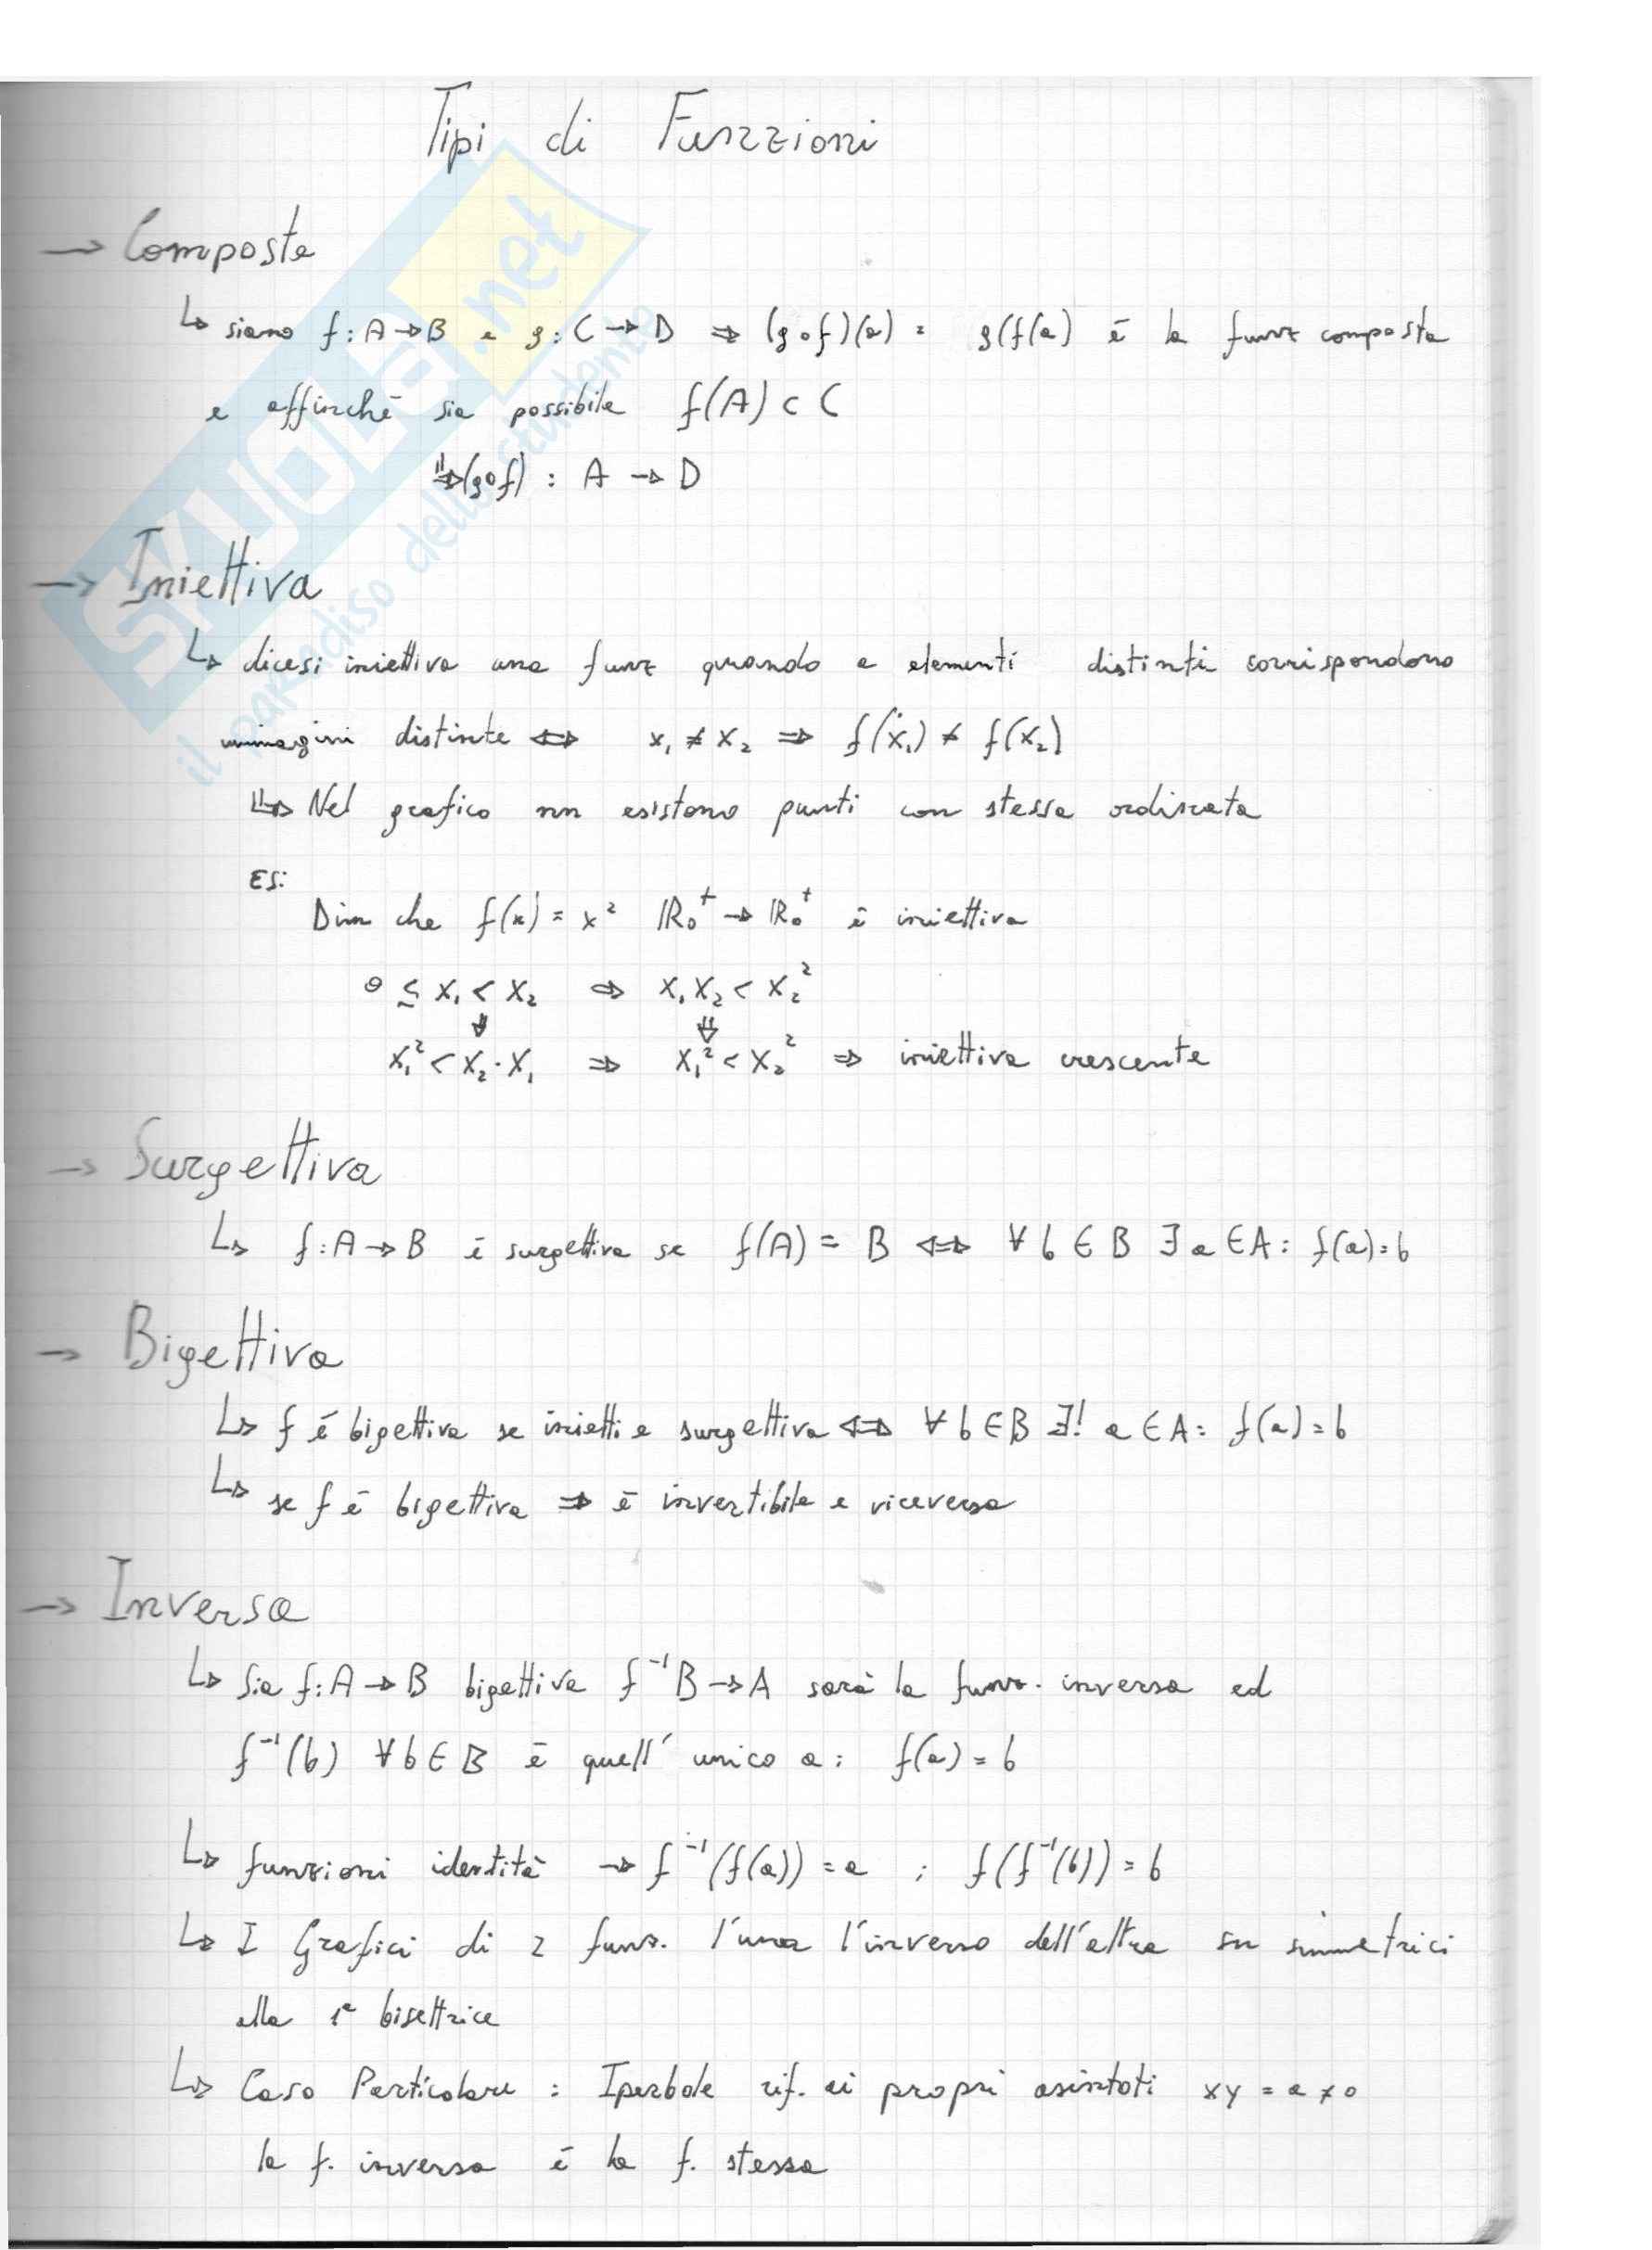 Tipi di Funzioni
→ Composte
↳ siano f: A → B e g: C → D ⇒ (g∘f)(a) = g(f(a) è la funz composta
e affinché sia possibile f(A) ⊂ C
⇒ (g∘f) : A → D
→ Iniettiva
↳ dicesi iniettiva una funz quando a elementi distinti corrispondono
immagini distinte ⇔ x₁ ≠ x₂ ⇒ f(x₁) ≠ f(x₂)
↳ Nel grafico nn esistono punti con stessa ordinata
ES:
Dim che f(x) = x² ℝ₀⁺ → ℝ₀⁺ è iniettiva
0 ≤ x₁ < x₂ ⇒ x₁x₂ < x₂²
⇓ ⇓
x₁² < x₂·x₁ ⇒ x₁² < x₂² ⇒ iniettiva crescente
→ Surgettiva
↳ f: A → B è surgettiva se f(A) = B ⇔ ∀ b ∈ B ∃ a ∈ A: f(a) = b
→ Bigettiva
↳ f è bigettiva se inietti e surgettiva ⇔ ∀ b ∈ B ∃! a ∈ A: f(a) = b
↳ se f è bigettiva ⇒ è invertibile e viceversa
→ Inversa
↳ Sia f: A → B bigettiva f⁻¹ B → A sarà la funz. inversa ed
f⁻¹(b) ∀ b ∈ B è quell' unico a: f(a) = b
↳ funzioni identità → f⁻¹(f(a)) = a ; f(f⁻¹(b)) = b
↳ I Grafici di 2 funz. l'una l'inverso dell'altra sn simmetrici
alla 1ª bisettrice
↳ Caso Particolare : Iperbole rif. ai propri asintoti xy = a ≠ 0
la f. inversa è la f. stessa
SKUOLA.net
il paradiso dello studente